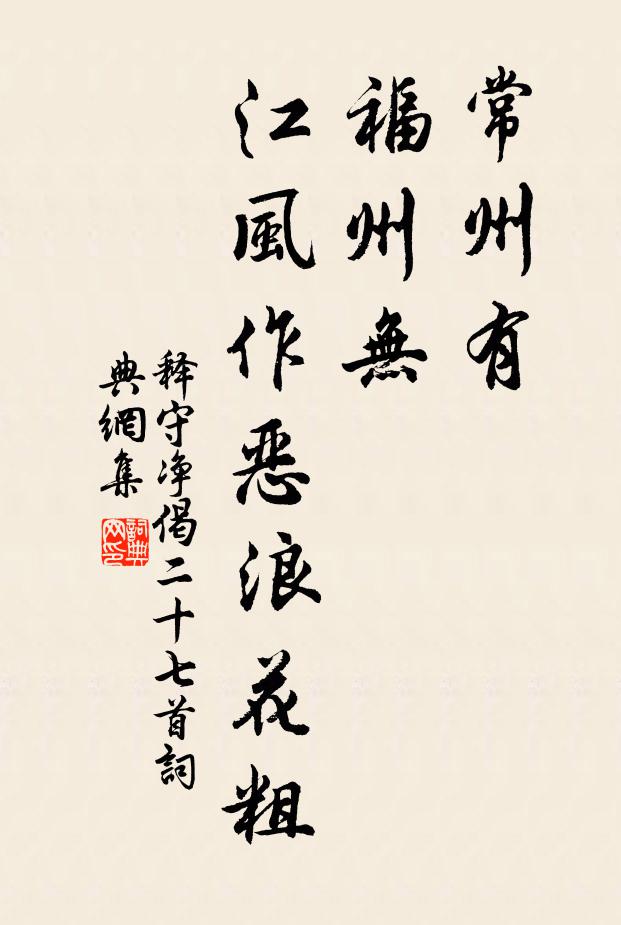 常州有
福州無
江風作惡浪花粗
释守净偈二十七首詞
典網集
詞典
网印